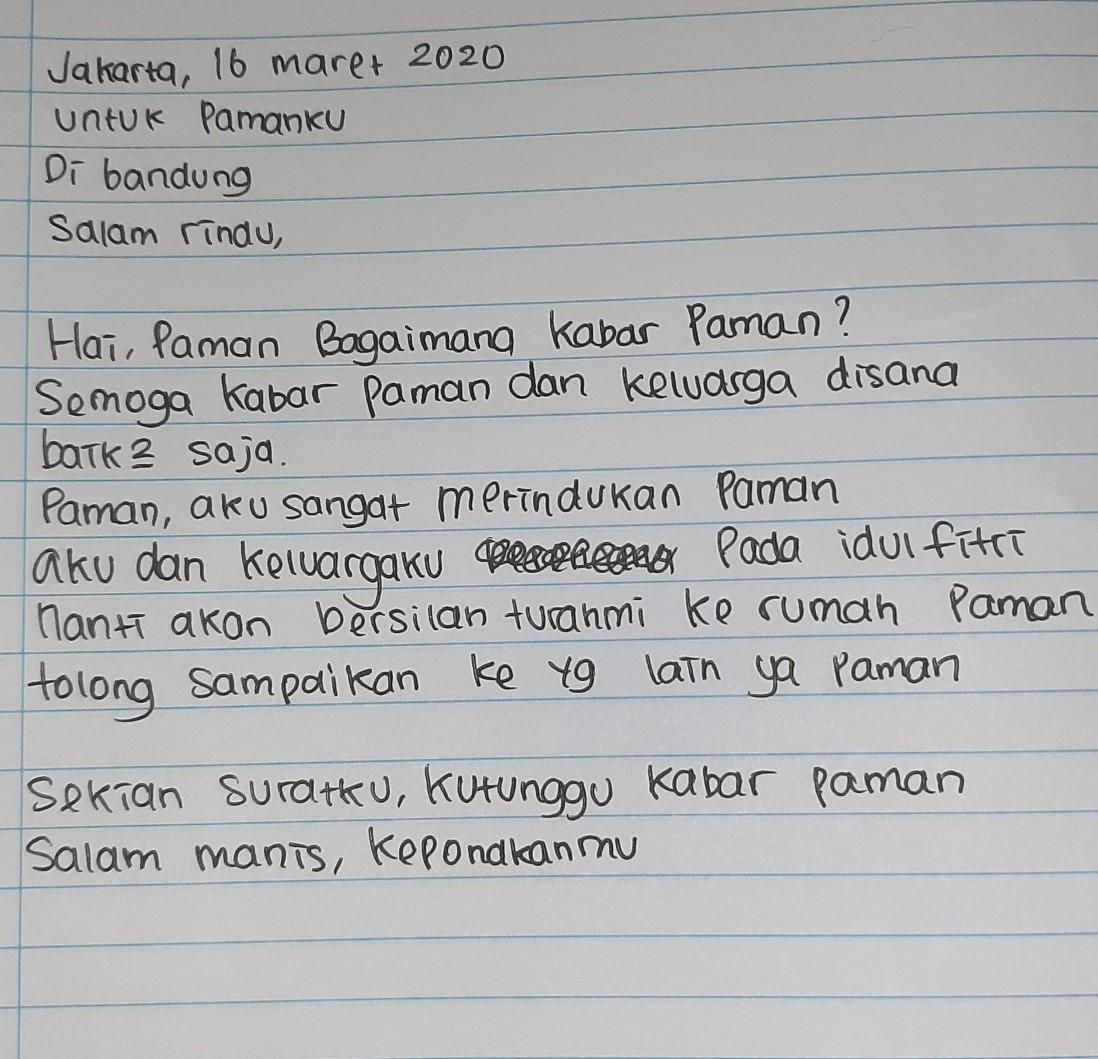 Jakarta, 16 maret 2020
untuk Pamanku
Di bandung
Salam rindu,
Hai, Paman Bagaimana kabar Paman?
Semoga kabar paman dan keluarga disana
baik2 saja.
Paman, aku sangat merindukan Paman
aku dan keluargaku Pada idul fitri
nanti akan bersilan turahmi ke rumah Paman
tolong sampaikan ke yg lain ya Paman
Sekian suratku, kutunggu kabar paman
Salam manis, keponakanmu